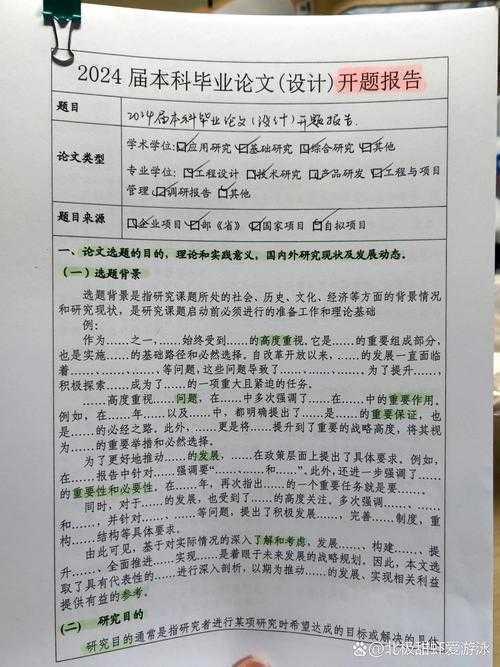 2024届本科毕业论文(设计)开题报告
题目
2024届本科毕业论文(设计)开题报告.
论文类型
学术学位:☑应用研究 ☑基础研究 ☑综合研究 ☑其他
专业学位:☑工程设计 ☑技术研究 ☑产品研发 ☑工程与项目
管理☑调研报告☑其他
题目来源
☑企业项目☑部《省》☑国家项目 ☑自拟项目
一、论文选题的目的,理论和实践意义,国内外研究现状及发展动态。
(一)选题背景
选题背景是指研究课题所处的社会、历史、文化、经济等方面的背景情况
和研究现状,是研究课题启动前必须进行的准备工作和理论基础
例:
作为……之一,……始终受到……的高度重视。它是……的重要组成部分,
也是实施……的基础路径和必然选择。自改革开放以来,……的发展一直面临
着……、……等问题,这些问题导致了……、……为了提升……,
积极探索……成为了……的一项重大且紧迫的任务。
……高度重视……问题,在……中多次强调了……在……中的重要作用。
例如,在……年……以及……中,都明确提出了……是……的重要保证,也
是……的必经之路。此外,……更是将……提升到了重要的战略高度,将其视
为……的重要举措和必然选择。
为了更好地推动……的发展,……在政策层面上提出了具体要求。例如,
在……报告中针对……强调要“……、……和……”。此外,还进一步强调了……
的重要性和必要性。在……年,再次指出……的一个重要任务就是要……。
同时,对于……的发展,也受到了……的高度关注。多次强调……、……
和……,并针对……、……等问题,提出了积极发展……,完善……制度,重
构……结构等具体要求。
由此可见,基于对实际情况的深入了解和考虑,发展……、构建……、提
升……、全面推进……实现……是着眼于未来发展的战略规划。因此,本文选
取了具有代表性的……进行深入剖析,以期为推动……的发展、实现相关利益
提供有益的参考。
(二) 研究目的
研究目的通常是指研究者进行某项研究时希望达成的目标或解决的具体
@北极甜虾爱游泳